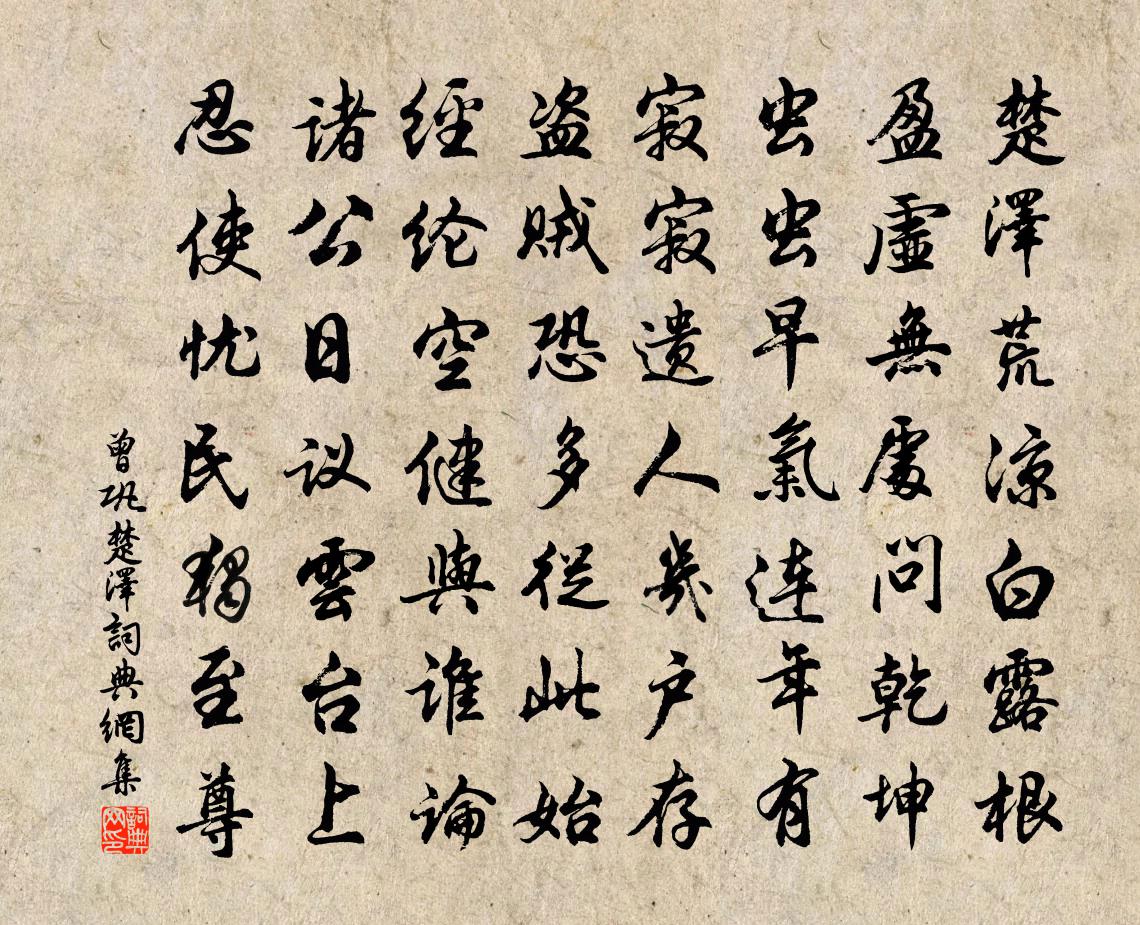 楚澤荒涼白露根
盈虛無處問乾坤
虫虫早氣連年有
寂寂遺人幾户存
盗賊恐多從此始
經纶空健與誰論
諸公日议雲台上
忍使忧民獨至尊
曾巩楚澤詞典網集
詞典网印